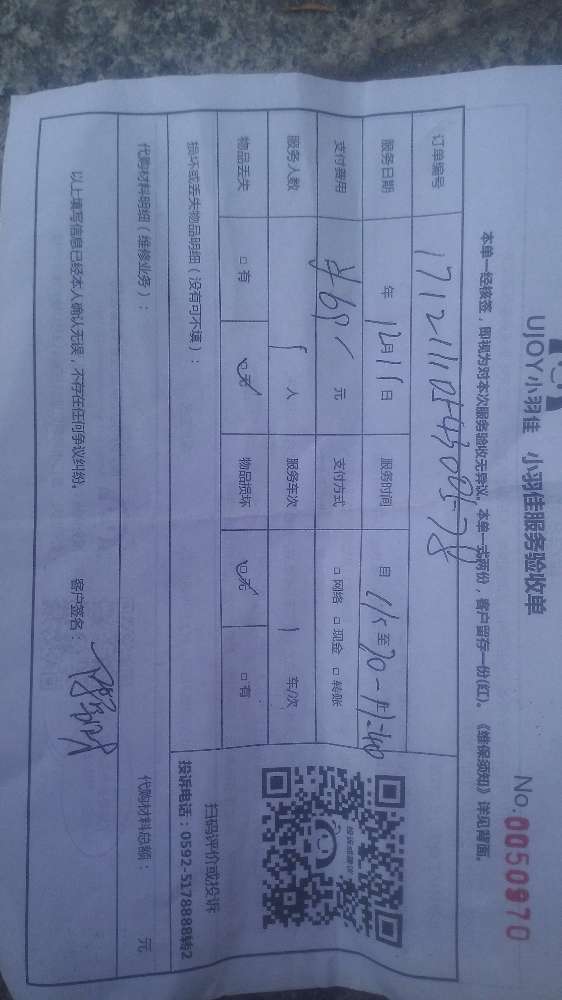 UJOY小羽佳 小羽佳服务验收单
No.0050970
本单一经核签，即视为对本次服务验收无异议。本单一式两份，客户留存一份(红)。《维保须知》详见背面。
订单编号
服务日期 年 12月15日 服务时间 自 至
支付费用 元 支付方式 □ 网络 □ 现金 □ 转账
服务人数 人 服务车次 1 车/次
物品丢失 □ 有 □ 无 物品损坏 □ 无 □ 有
损坏或丢失物品明细（没有可不填）：
扫码评价或投诉
投诉电话：0592-5178888转2
代购材料明细（维修业务）： 代购材料总额： 元
以上填写信息已经本人确认无误，不存在任何争议纠纷。 客户签名：